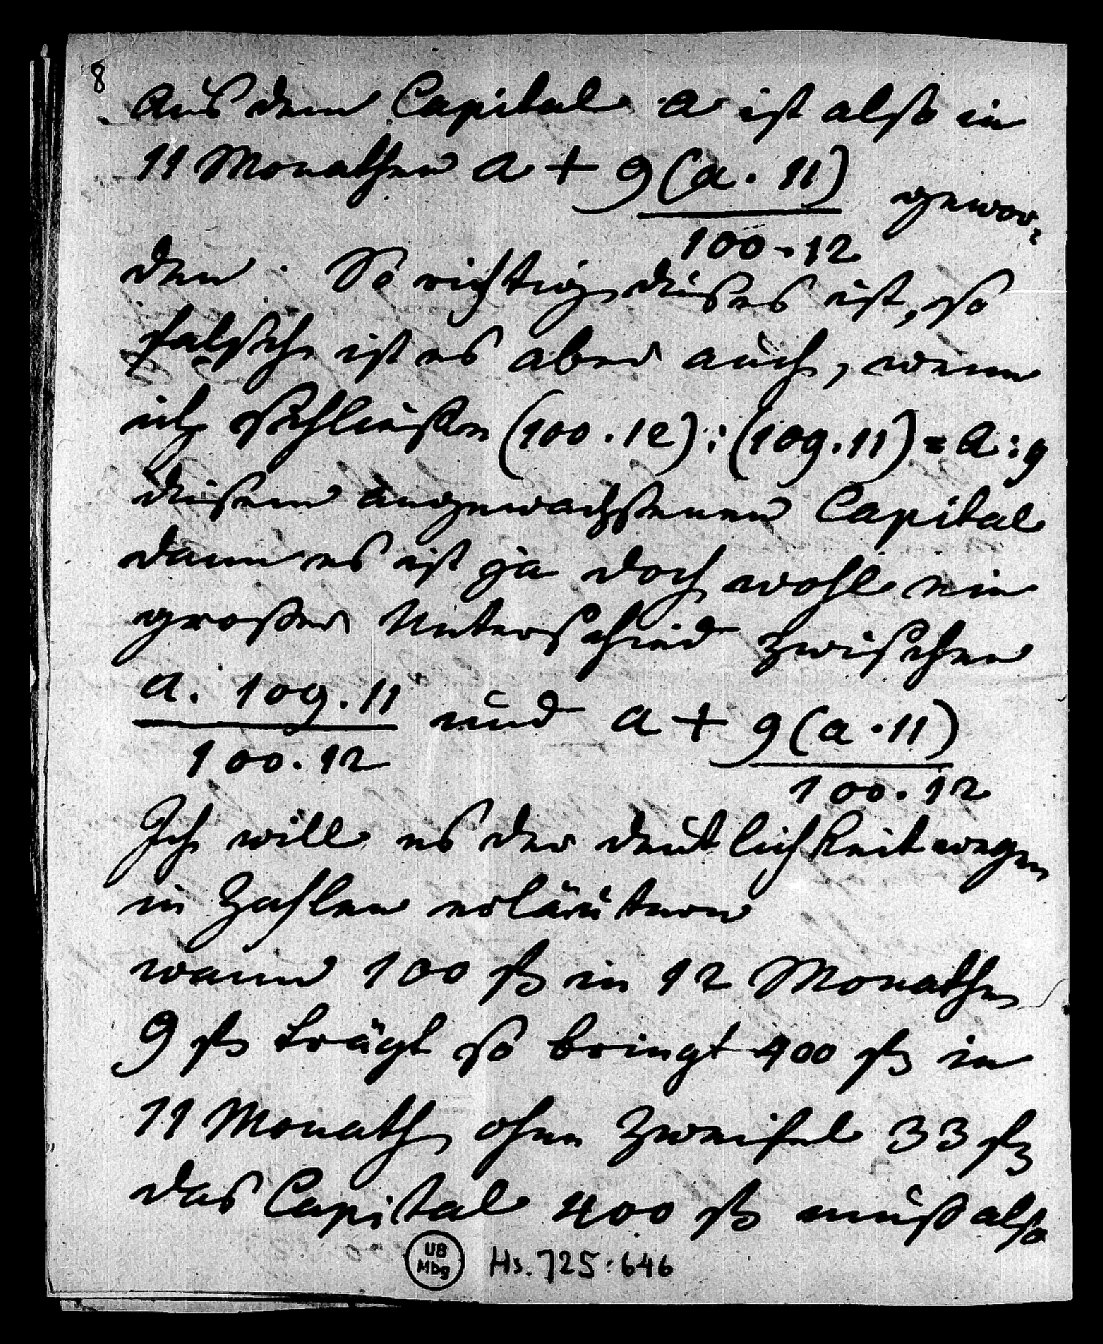 8
Aus dem Capital a ist also in
11 Monathen a + 9 (a . 11) / 100 . 12 gewor-
den . So richtig dieses ist, so
falsch ist es aber auch, wenn
ich schließen (100 . 12) : (109 . 11) = a : 9
diesem angewachsenen Capital
dann es ist ja doch wohl ein
großer Unterschied zwischen
a . 109 . 11 / 100 . 12 und a + 9 (a . 11) / 100 . 12
Ich will es der deutlichkeit wegen
in Zahlen erläutern
wann 100 fl in 12 Monathen
9 fl trägt so bringt 400 fl in
11 Monath ohne Zweifel 33 fl
das Capital 400 fl muß also
UB
Mbg
Hs. 725:646